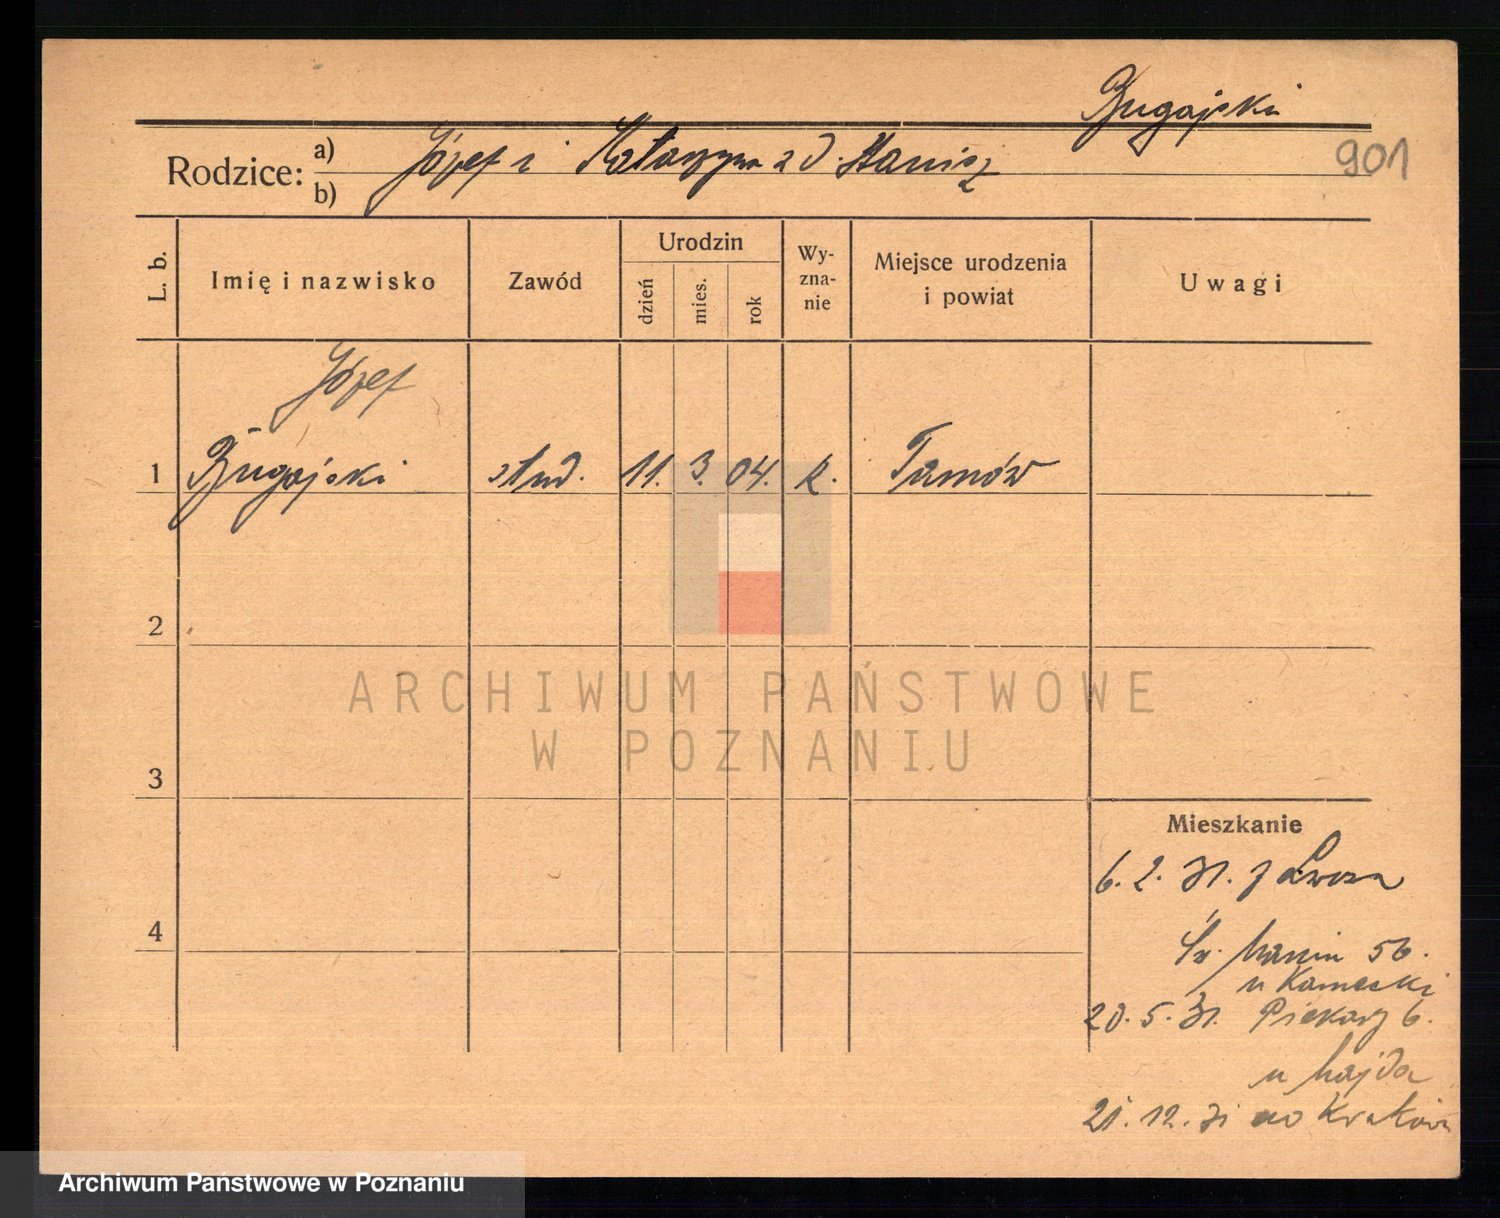 Bugajski
901
Rodzice: a) b) Józef i Katarzyna z d. Stanisz
L. b.
Imię i nazwisko
Zawód
Urodzin
dzień
mies.
rok
Wy-
zna-
nie
Miejsce urodzenia
i powiat
Uwagi
Józef
1 Bugajski stud. 11. 3. 04. k. Tarnów
2
3
4
ARCHIWUM PAŃSTWOWE
W POZNANIU
Mieszkanie
6. 2. 31. z Lwowa
Św. Marcin 56.
u
20. 5. 31. Piekary 6.
u Majda
21. 12. 31 do Kraków
Archiwum Państwowe w Poznaniu